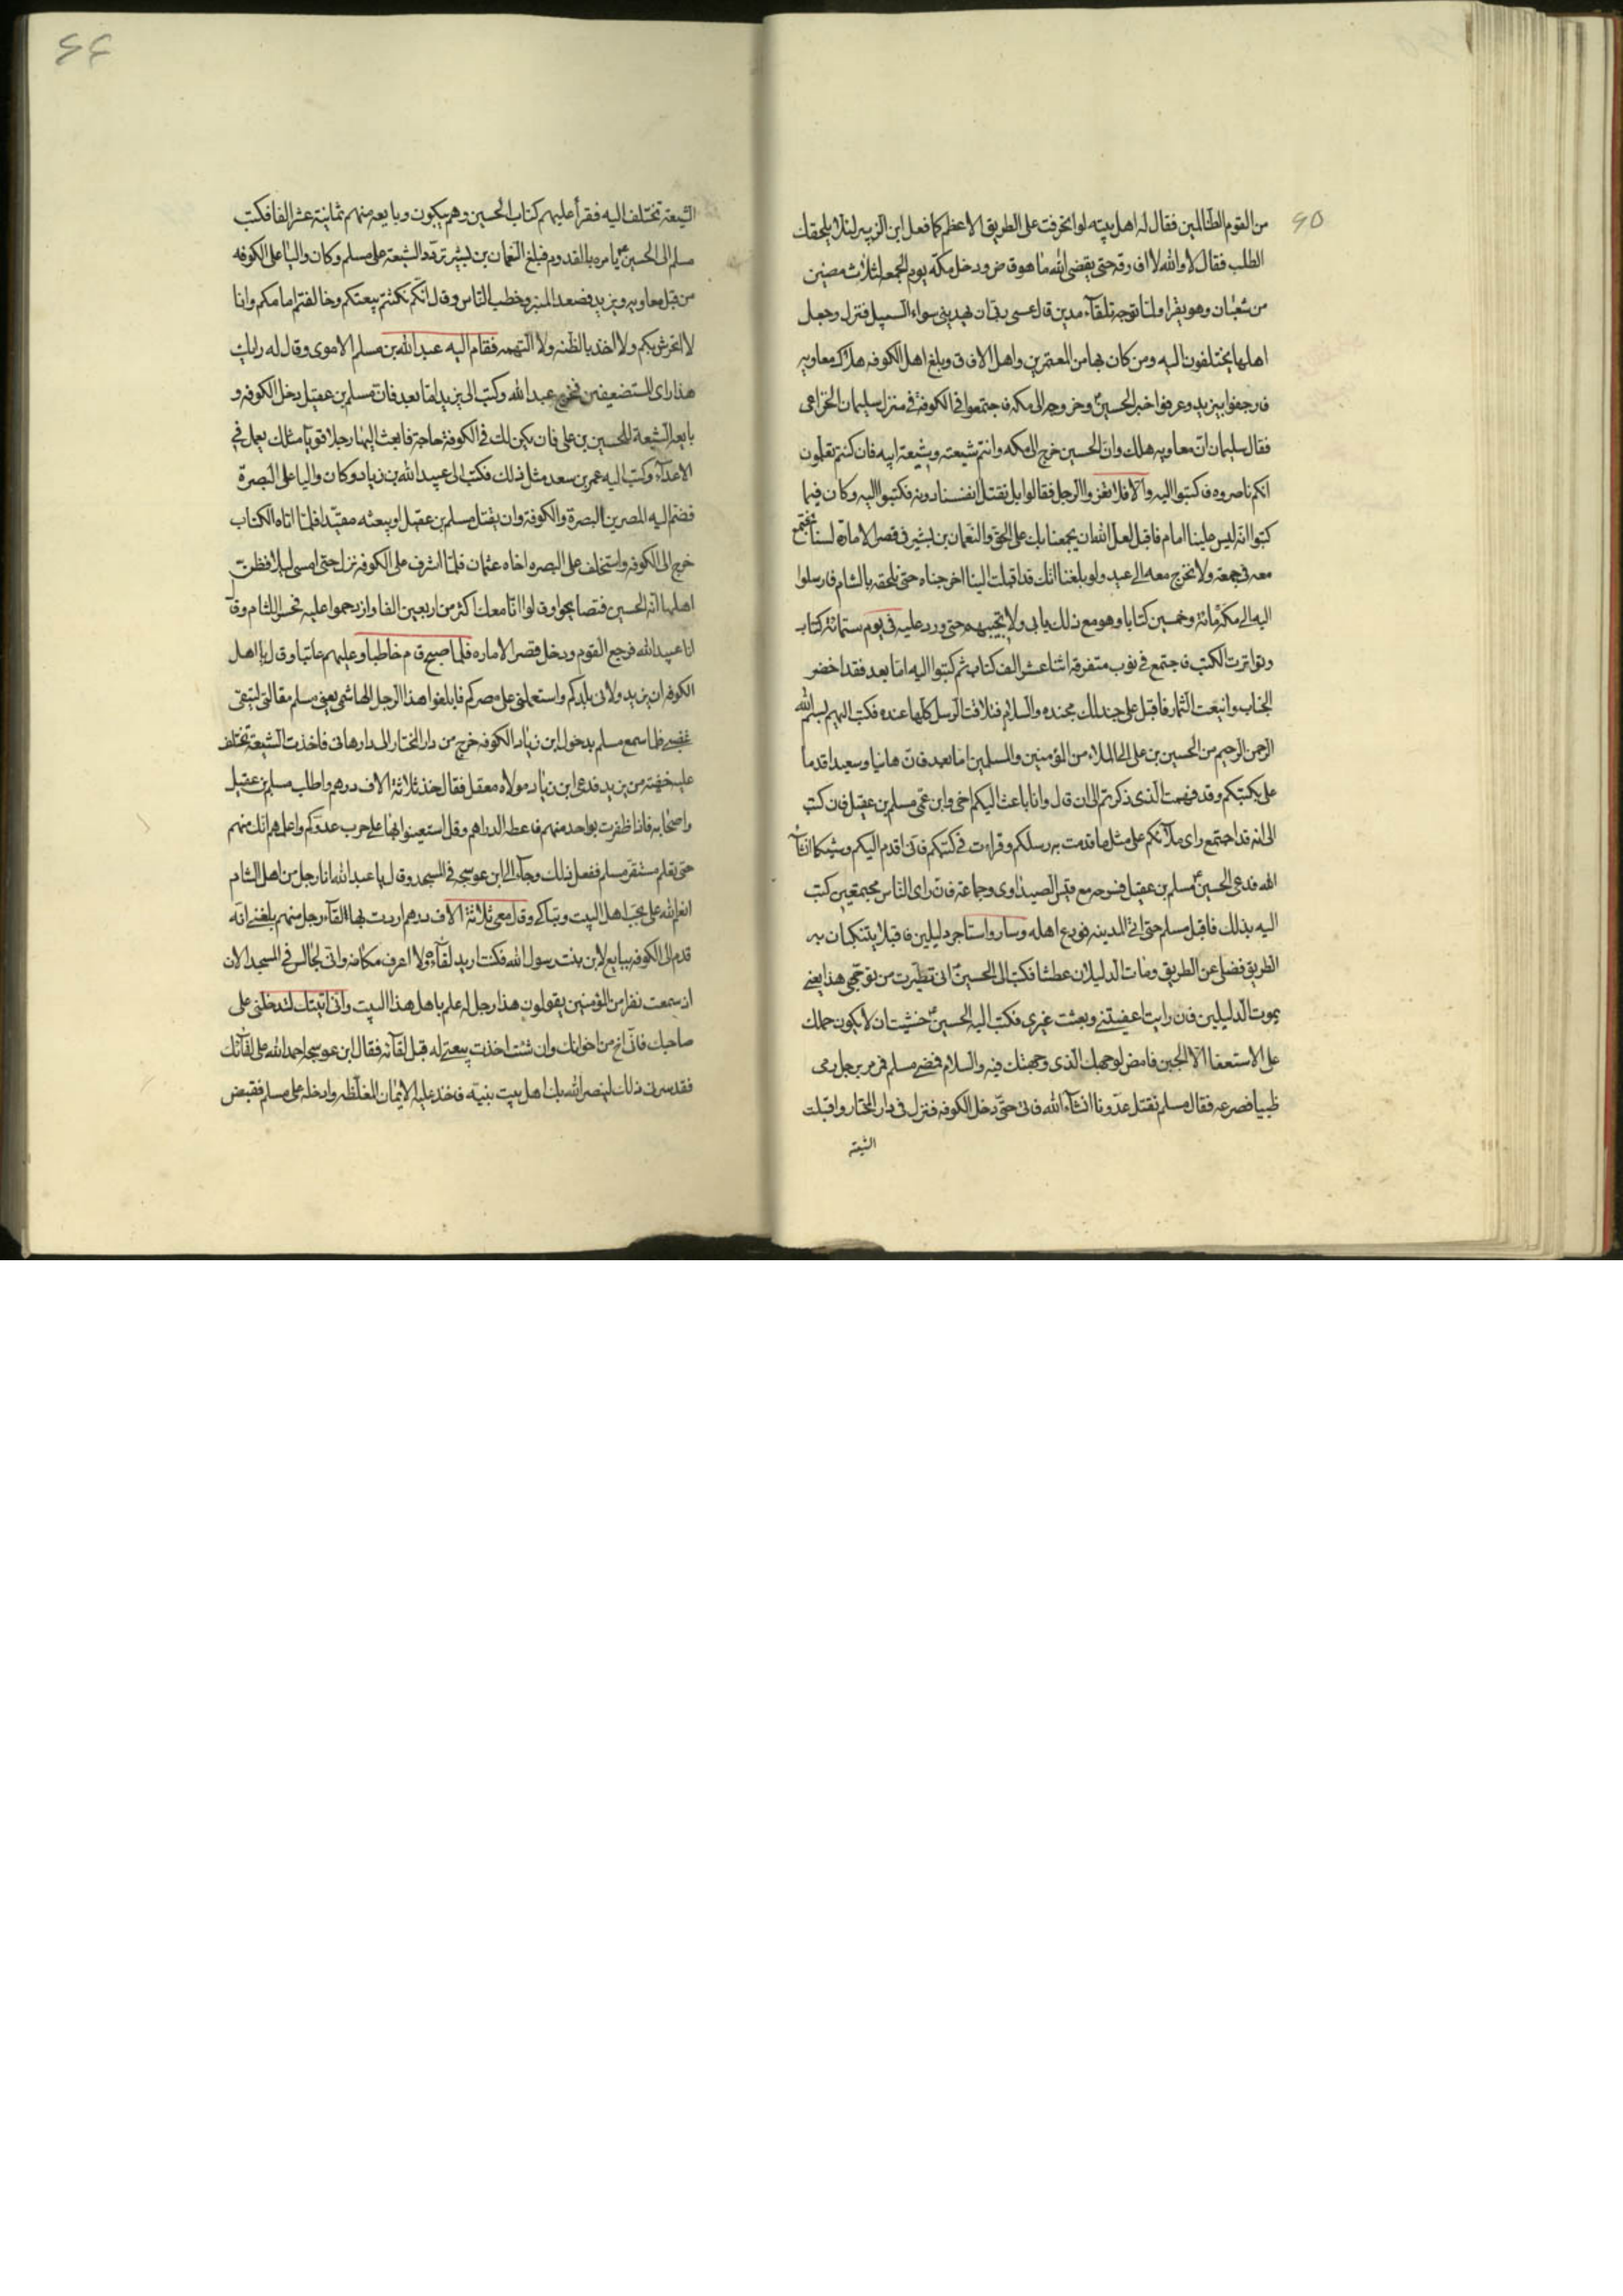 ٦٥
من القوم الظالمين فقال له اهل بيته لو انحرفت على الطريق الاعظم كما فعل ابن الزبير لئلا يلحقك
الطلب فقال لا والله لا افارقه حتى يقضى الله ما هو قاض ودخل مكة يوم الجمعة لثلاث مضين
من شعبان وهو يقرا ولما توجه تلقاء مدين قال عسى ربى ان يهدينى سواء السبيل فنزل وجعل
اهلها يختلفون اليه ومن كان بها من المعتمرين واهل الافاق وبلغ اهل الكوفه هلاك معاويه
فارجفوا بيزيد وعرفوا خبر الحسين وخروجه الى مكه فاجتمعوا فى الكوفة فى منزل سليمان الخزاعى
فقال سليمان ان معاويه هلك وان الحسين خرج الى مكه وانتم شيعته وشيعة ابيه فان كنتم تعلمون
انكم ناصروه فاكتبوا اليه والا فلا تغروا الرجل فقالوا بل نقتل انفسنا دونه فكتبوا اليه وكان فيما
كتبوا انه ليس علينا امام فاقبل لعل الله ان يجمعنا بك على الحق والنعمان بن بشير فى قصر الامارة لسنا نجتمع
معه فى جمعة ولا نخرج معه الى عيد ولو بلغنا انك قد اقبلت الينا اخرجناه حتى نلحقه بالشام فارسلوا
اليه الى مكة مائة وخمسين كتابا وهو مع ذلك يابى ولا يجيبهم حتى ورد عليه فى يوم ستمائة كتاب
وتواترت الكتب فاجتمع فى نوب متفرقة اثنا عشر الف كتاب ثم كتبوا اليه اما بعد فقد اخضر
الجناب واينعت الثمار فاقبل على جند لك مجنده والسلام فتلاقت الرسل كلها عنده فكتب اليهم بسم الله
الرحمن الرحيم من الحسين بن على الى الملاء من المؤمنين والمسلمين اما بعد فان هانيا وسعيدا قدما
على بكتبكم وقد فهمت الذى ذكرتم الى ان قال وانا باعث اليكم اخى وابن عمى مسلم بن عقيل فان كتب
الى انه قد اجتمع راى ملائكم على مثل ما قدمت به رسلكم وقرات فى كتبكم فانى اقدم اليكم وشيكا انشاء
الله فدعى الحسين مسلم بن عقيل فسرحه مع قيس الصيداوى وجماعة فان راى الناس مجتمعين كتب
اليه بذلك فاقبل مسلم حتى اتى المدينه فودع اهله وسار واستاجر دليلين فاقبلا يتنكبان به
الطريق فضلا عن الطريق ومات الدليلان عطشا فكتب الى الحسين انى تطيرت من توجهى هذا يعنى
بموت الدليلين فان رايت اعفيتنى وبعثت غيرى فكتب اليه الحسين خشيت ان لا يكون حملك
على الاستعفا الا الجبن فامض لوجهك الذى وجهتك فيه والسلام فمضى مسلم فمر برجل رمى
ظبيا فصرعه فقال مسلم نقتل عدونا انشاء الله فاتى حتى دخل الكوفه فنزل فى دار المختار واقبلت
الشيعة
٦٦
الشيعة تختلف اليه فقرأ عليهم كتاب الحسين وهم يبكون وبايعه منهم ثمانية عشر الفا فكتب
مسلم الى الحسين يامره بالقدوم فبلغ النعمان بن بشير تردد الشيعة على مسلم وكان واليا على الكوفه
من قبل معاويه ويزيد فصعد المنبر وخطب الناس وقال انكم نكثتم بيعتكم وخالفتم امامكم وانا
لا اتحرش بكم ولا اخذ بالظنه ولا التهمه فقام اليه عبد الله بن مسلم الاموى وقال له رايك
هذا راى المستضعفين فخرج عبد الله وكتب الى يزيد اما بعد فان مسلم بن عقيل دخل الكوفه و
بايعه الشيعة للحسين بن على فان يكن لك فى الكوفة حاجة فابعث اليها رجلا قويا مثلك يعمل فى
الاعداء وكتب اليه عمر بن سعد مثل ذلك فكتب الى عبيد الله بن زياد وكان واليا على البصرة
فضم اليه المصرين البصرة والكوفة وان يقتل مسلم بن عقيل او يبعثه مقيدا فلما اتاه الكتاب
خرج الى الكوفه واستخلف على البصره اخاه عثمان فلما اشرف على الكوفه نزل حتى امسى ليلا فظن
اهلها انه الحسين فتصايحوا وقالوا انا معك اكثر من اربعين الفا وازدحموا عليه فحسر اللثام وقال
انا عبيد الله فرجع القوم ودخل قصر الاماره فلما اصبح قام خاطبا وعليهم عاتبا وقال يا اهل
الكوفه ان يزيد ولانى بلدكم واستعملنى على مصركم فابلغوا هذا الرجل الهاشمى يعنى مسلم مقالتى ليتقى
غضبى فلما سمع مسلم بدخول ابن زياد الكوفه خرج من دار المختار الى دار هانى فاخذت الشيعة تختلف
عليه خفية من يزيد فدعى ابن زياد مولاه معقل فقال خذ ثلاثة الاف درهم واطلب مسلم بن عقيل
واصحابه فاذا ظفرت بواحد منهم فاعطه الدراهم وقل استعينوا بها على حرب عدوكم واعلمهم انك منهم
حتى تعلم مستقر مسلم ففعل ذلك وجاء الى ابن عوسجه فى المسجد وقال يا عبد الله انا رجل من اهل الشام
انعم الله على بحب اهل البيت وتباكى وقال معى ثلاثة الاف درهم اردت بها لقاء رجل منهم بلغنى انه
قدم الى الكوفه يبايع لابن بنت رسول الله فكنت اريد لقاءه ولا اعرف مكانه وانى لجالس فى المسجد الان
اذ سمعت نفرا من المؤمنين يقولون هذا رجل له علم باهل هذا البيت وانى اتيتك لتدخلنى على
صاحبك فانى اخ من اخوانك وان شئت اخذت بيعتى له قبل لقائه فقال ابن عوسجه احمد الله على لقائك
فقد سرنى ذلك لينصر الله بك اهل بيت نبيه فاخذ عليه الايمان المغلظه وادخله على مسلم فقبض